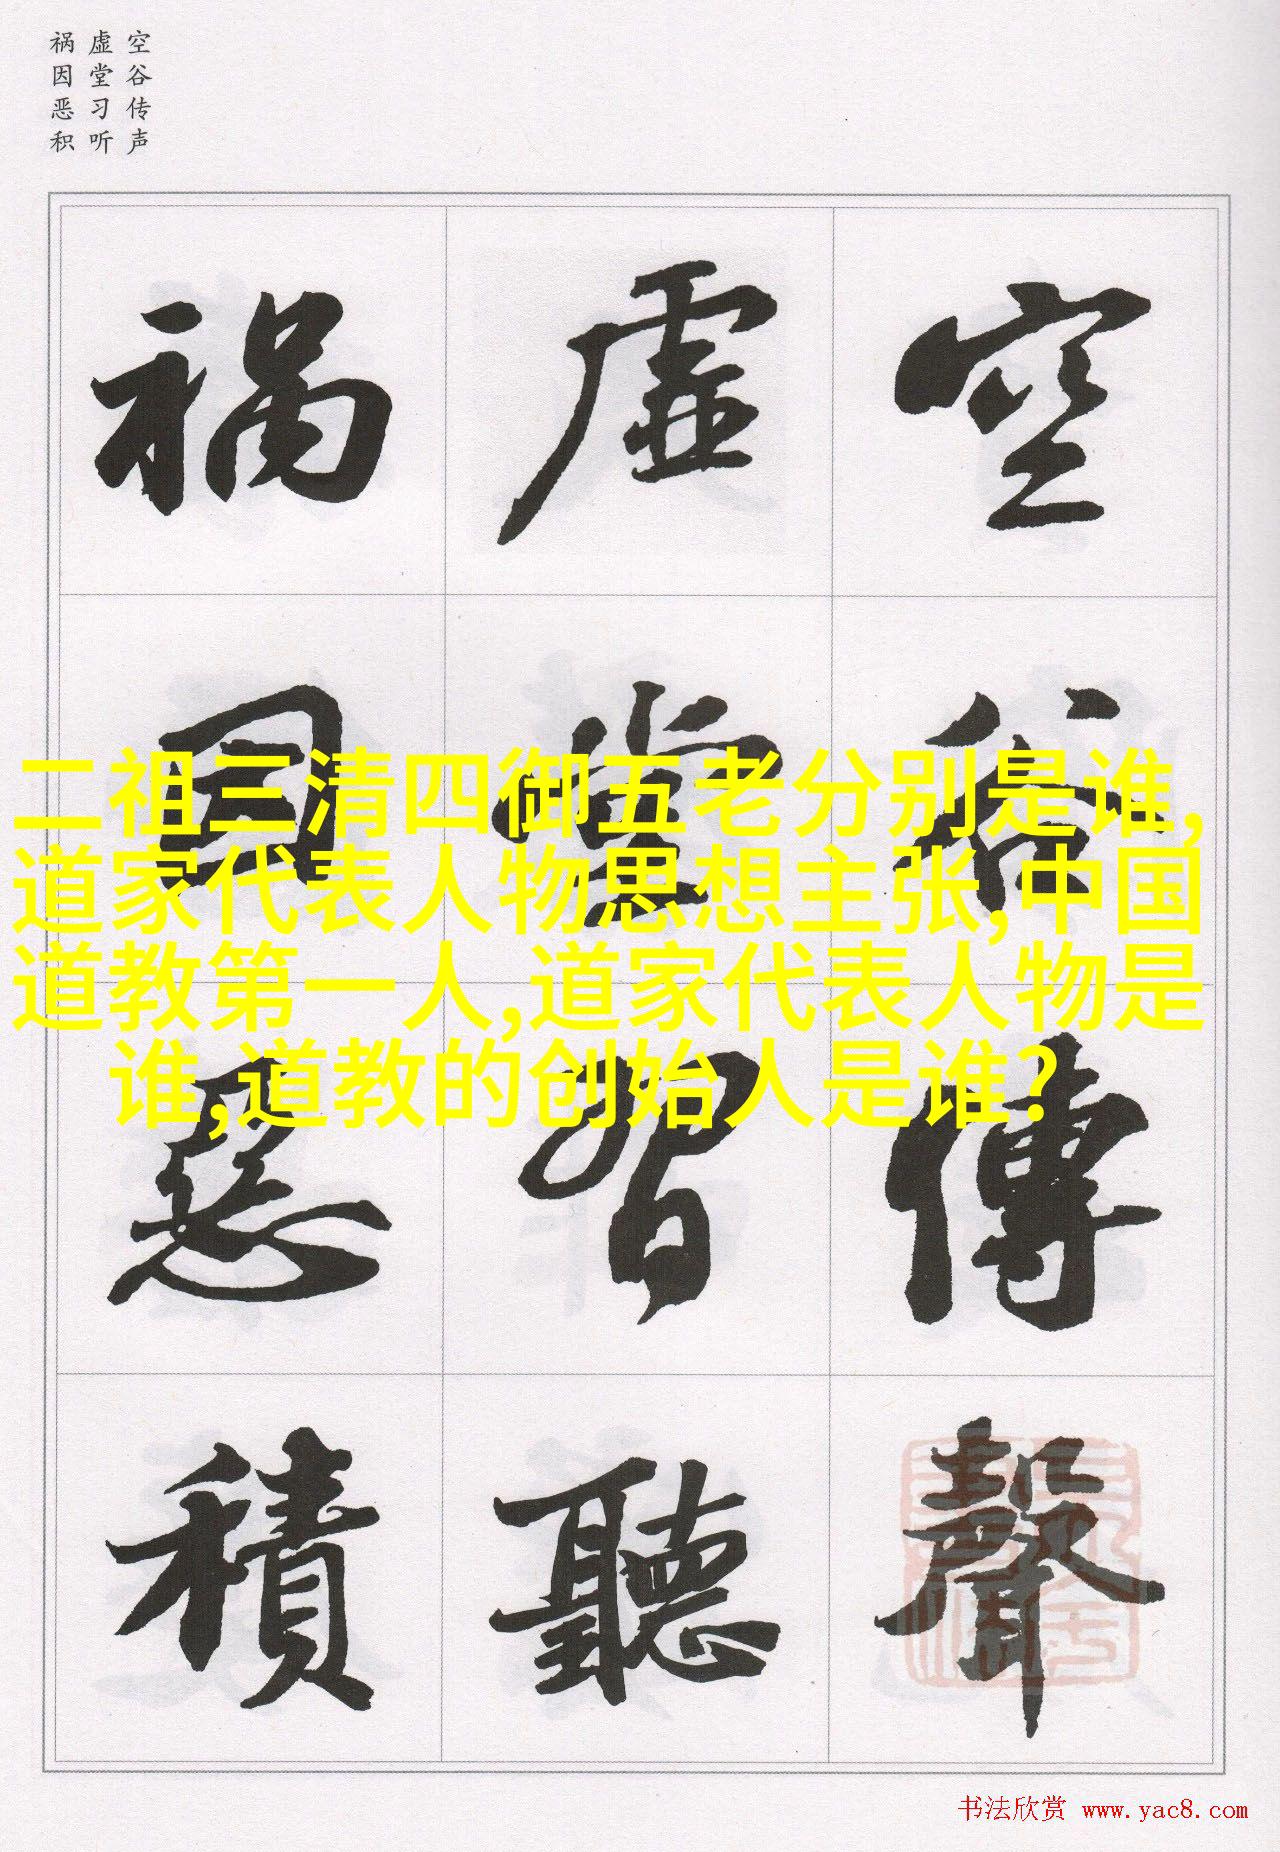 空谷传声
虚堂习听
祸因恶积
空谷傳聲
虛堂習聽
禍因惡積
二祖三清四御五老分别是谁,
道家代表人物思想主张,中国
道教第一人,道家代表人物是
谁,道教的创始人是谁?
书法欣赏 www.yac8.com